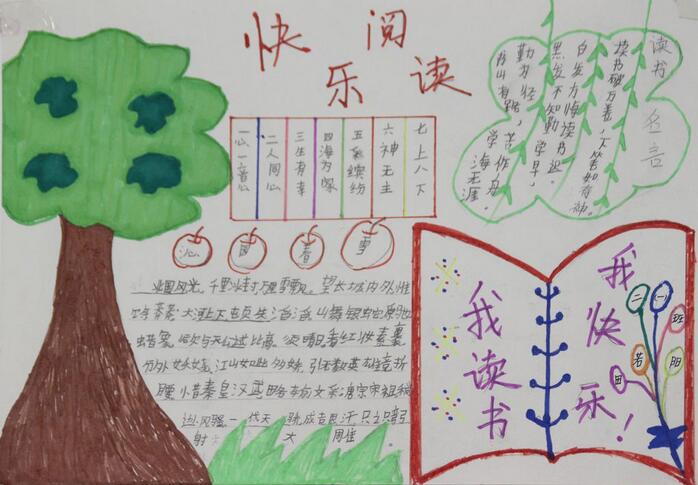 快乐阅读
读书名言
读书破万卷,下笔如有神。
黑发不知勤学早,
白发方悔读书迟。
书山有路
勤为径,
学海无涯
苦作舟。
一心一意
二人同心
三生有幸
四海为家
五彩缤纷
六神无主
七上八下
沁园春雪
北国风光,千里冰封,万里雪飘。望长城内外,惟
莽莽。大河上下顿失滔滔,山舞银蛇原驰
蜡象,欲与天公试比高。须晴日看红妆素裹
分外妖娆,江山如此多娇,引无数英雄竞折
腰,惜秦皇汉武略输文采,唐宗宋祖稍
逊风骚。一代天骄成吉思汗只识弯弓
射大雕
我读书
我快乐!
二
一
班
若
阳
田